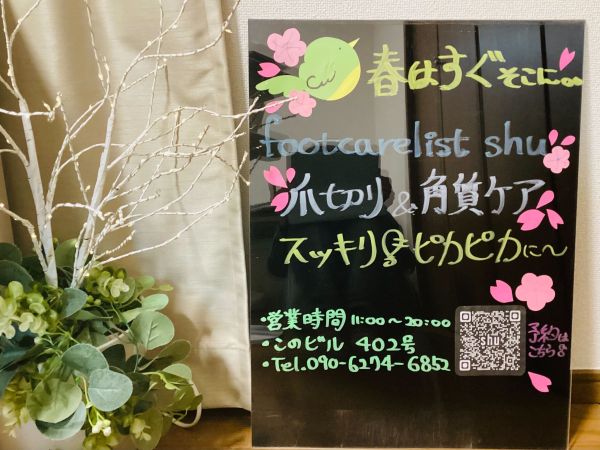 春はすぐそこに。。
footcarelist shu
爪切り&角質ケア
スッキリ&ピカピカに～
・営業時間 11:00～20:00
・このビル 402号
・Tel.090-6274-6852
shu
予約は
こちら